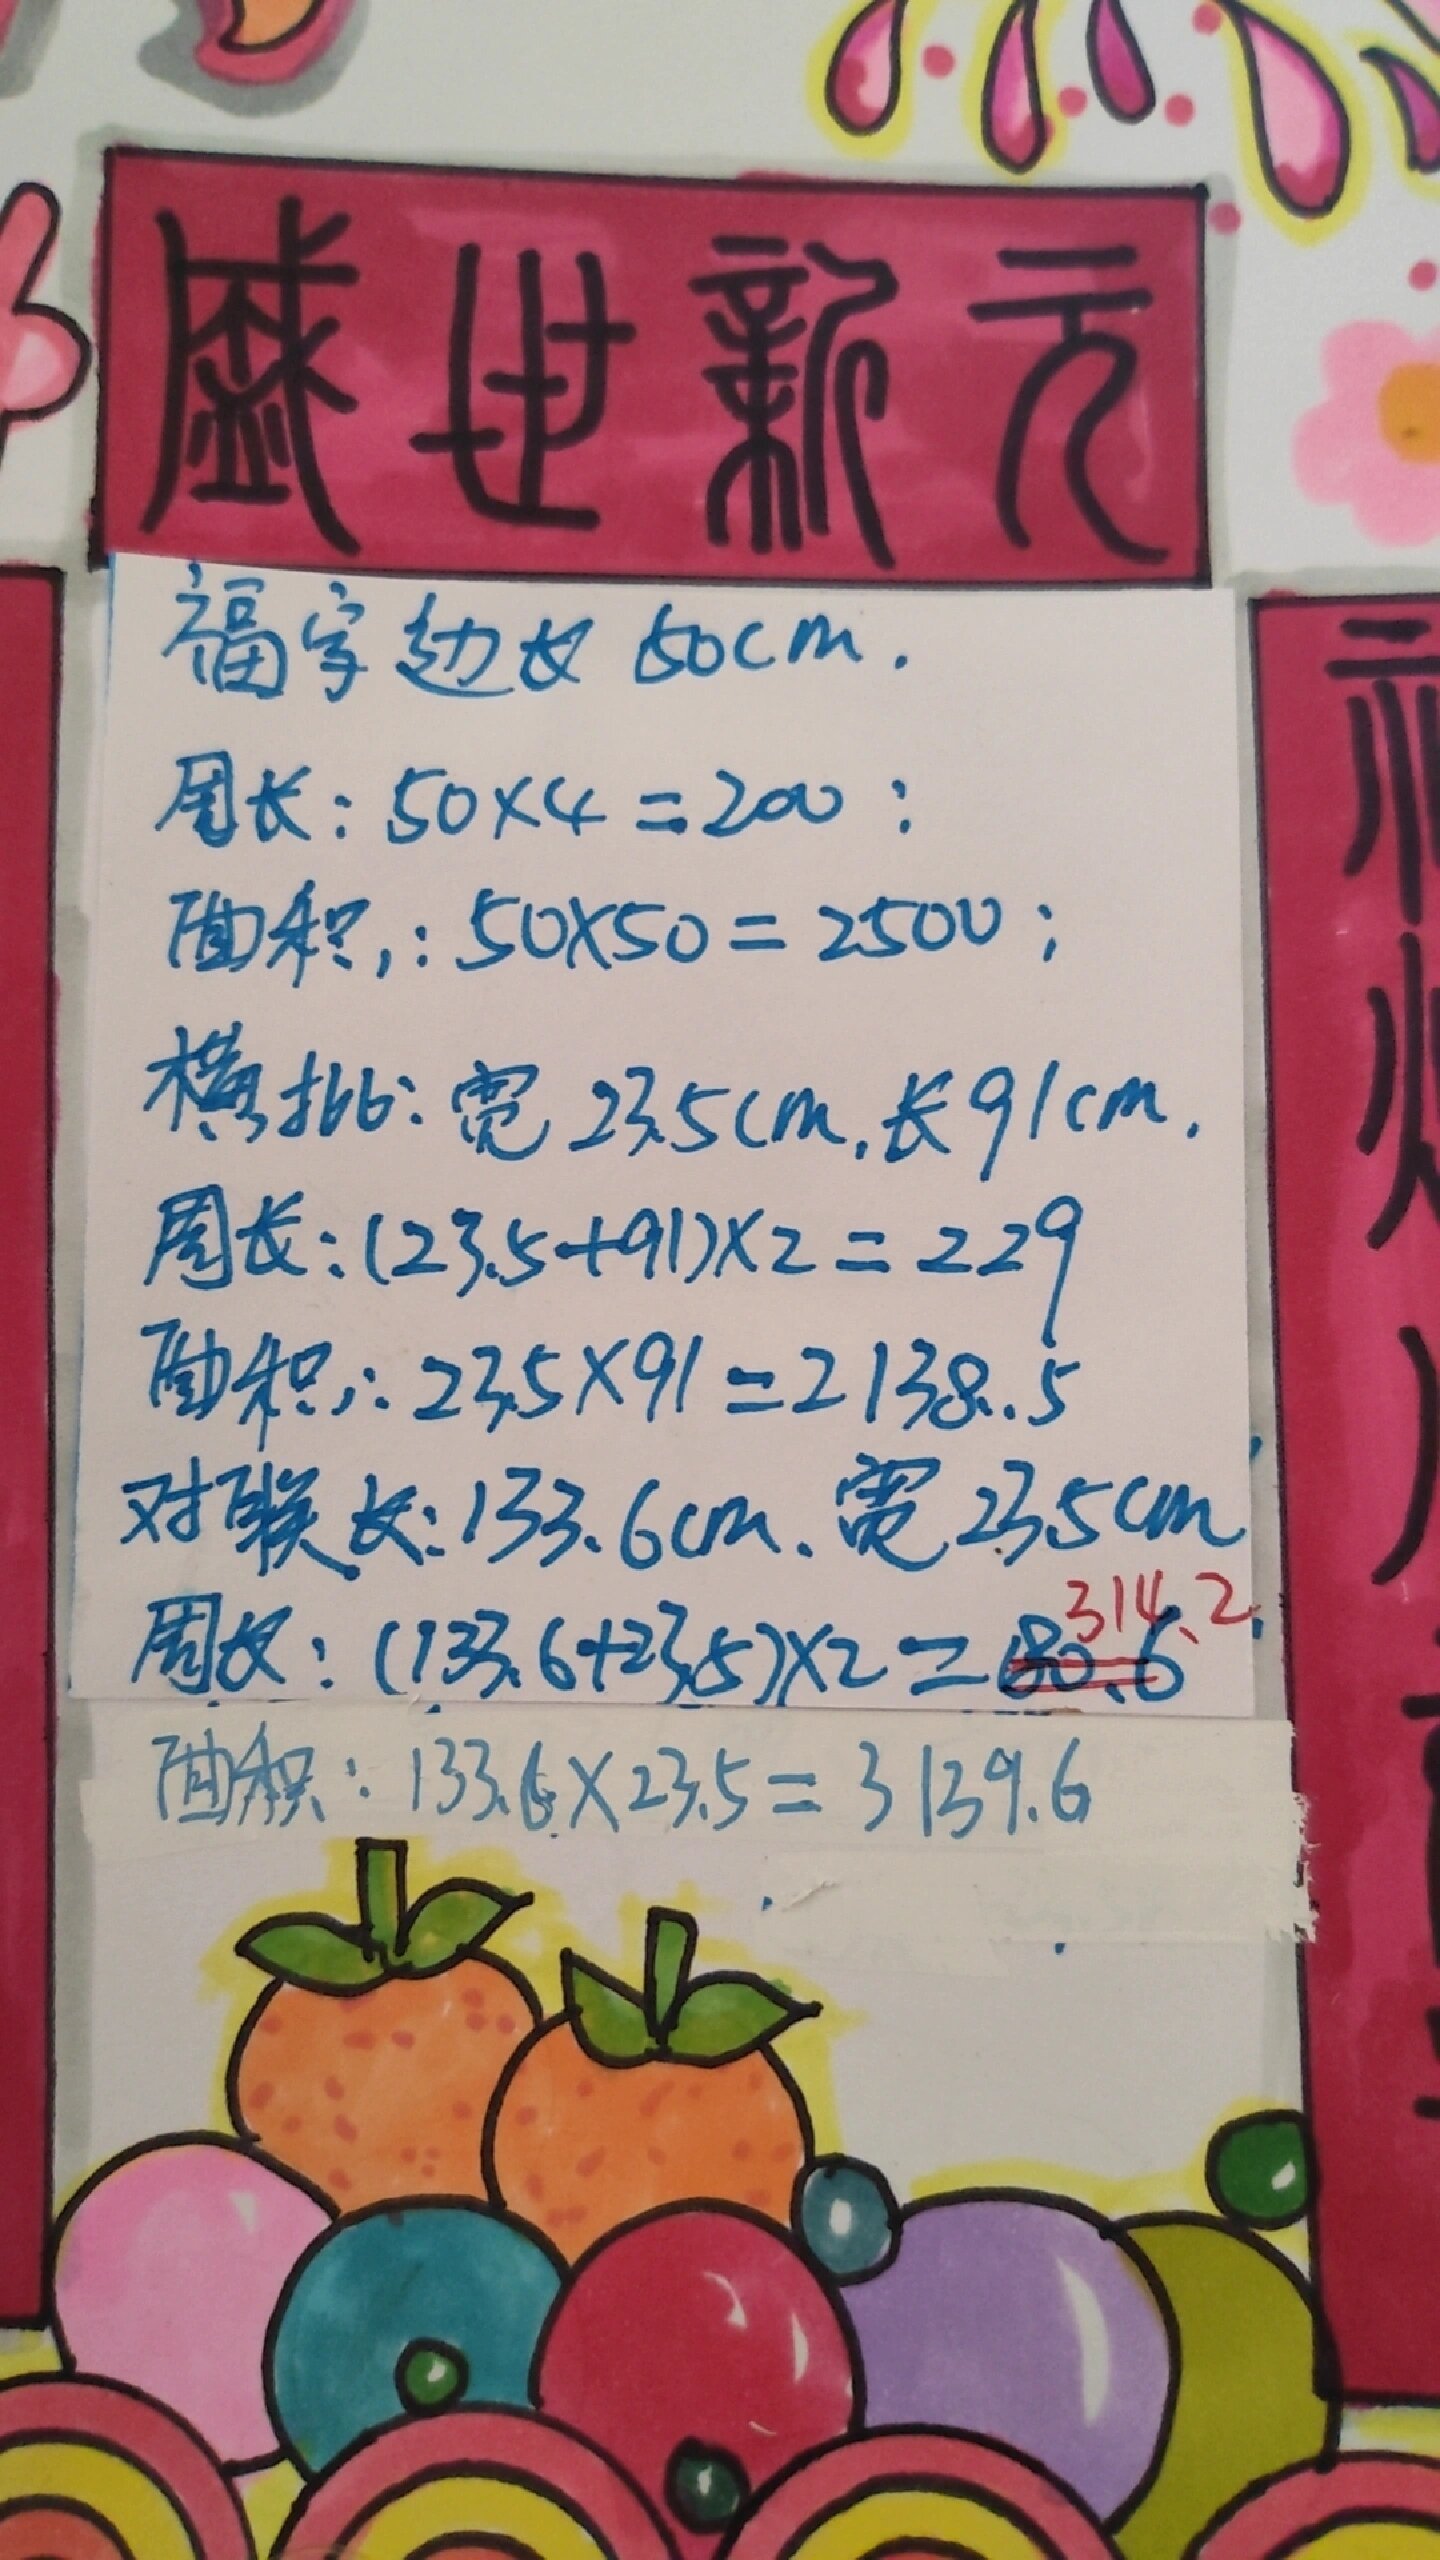 盛世新元
福字边长50cm.
周长:50×4=200;
面积:50×50=2500;
横批:宽23.5cm,长91cm.
周长:(23.5+91)×2=229
面积:23.5×91=2138.5
对联长:133.6cm.宽23.5cm
314.2
周长:(133.6+23.5)×2=
面积:133.6×23.5=3139.6